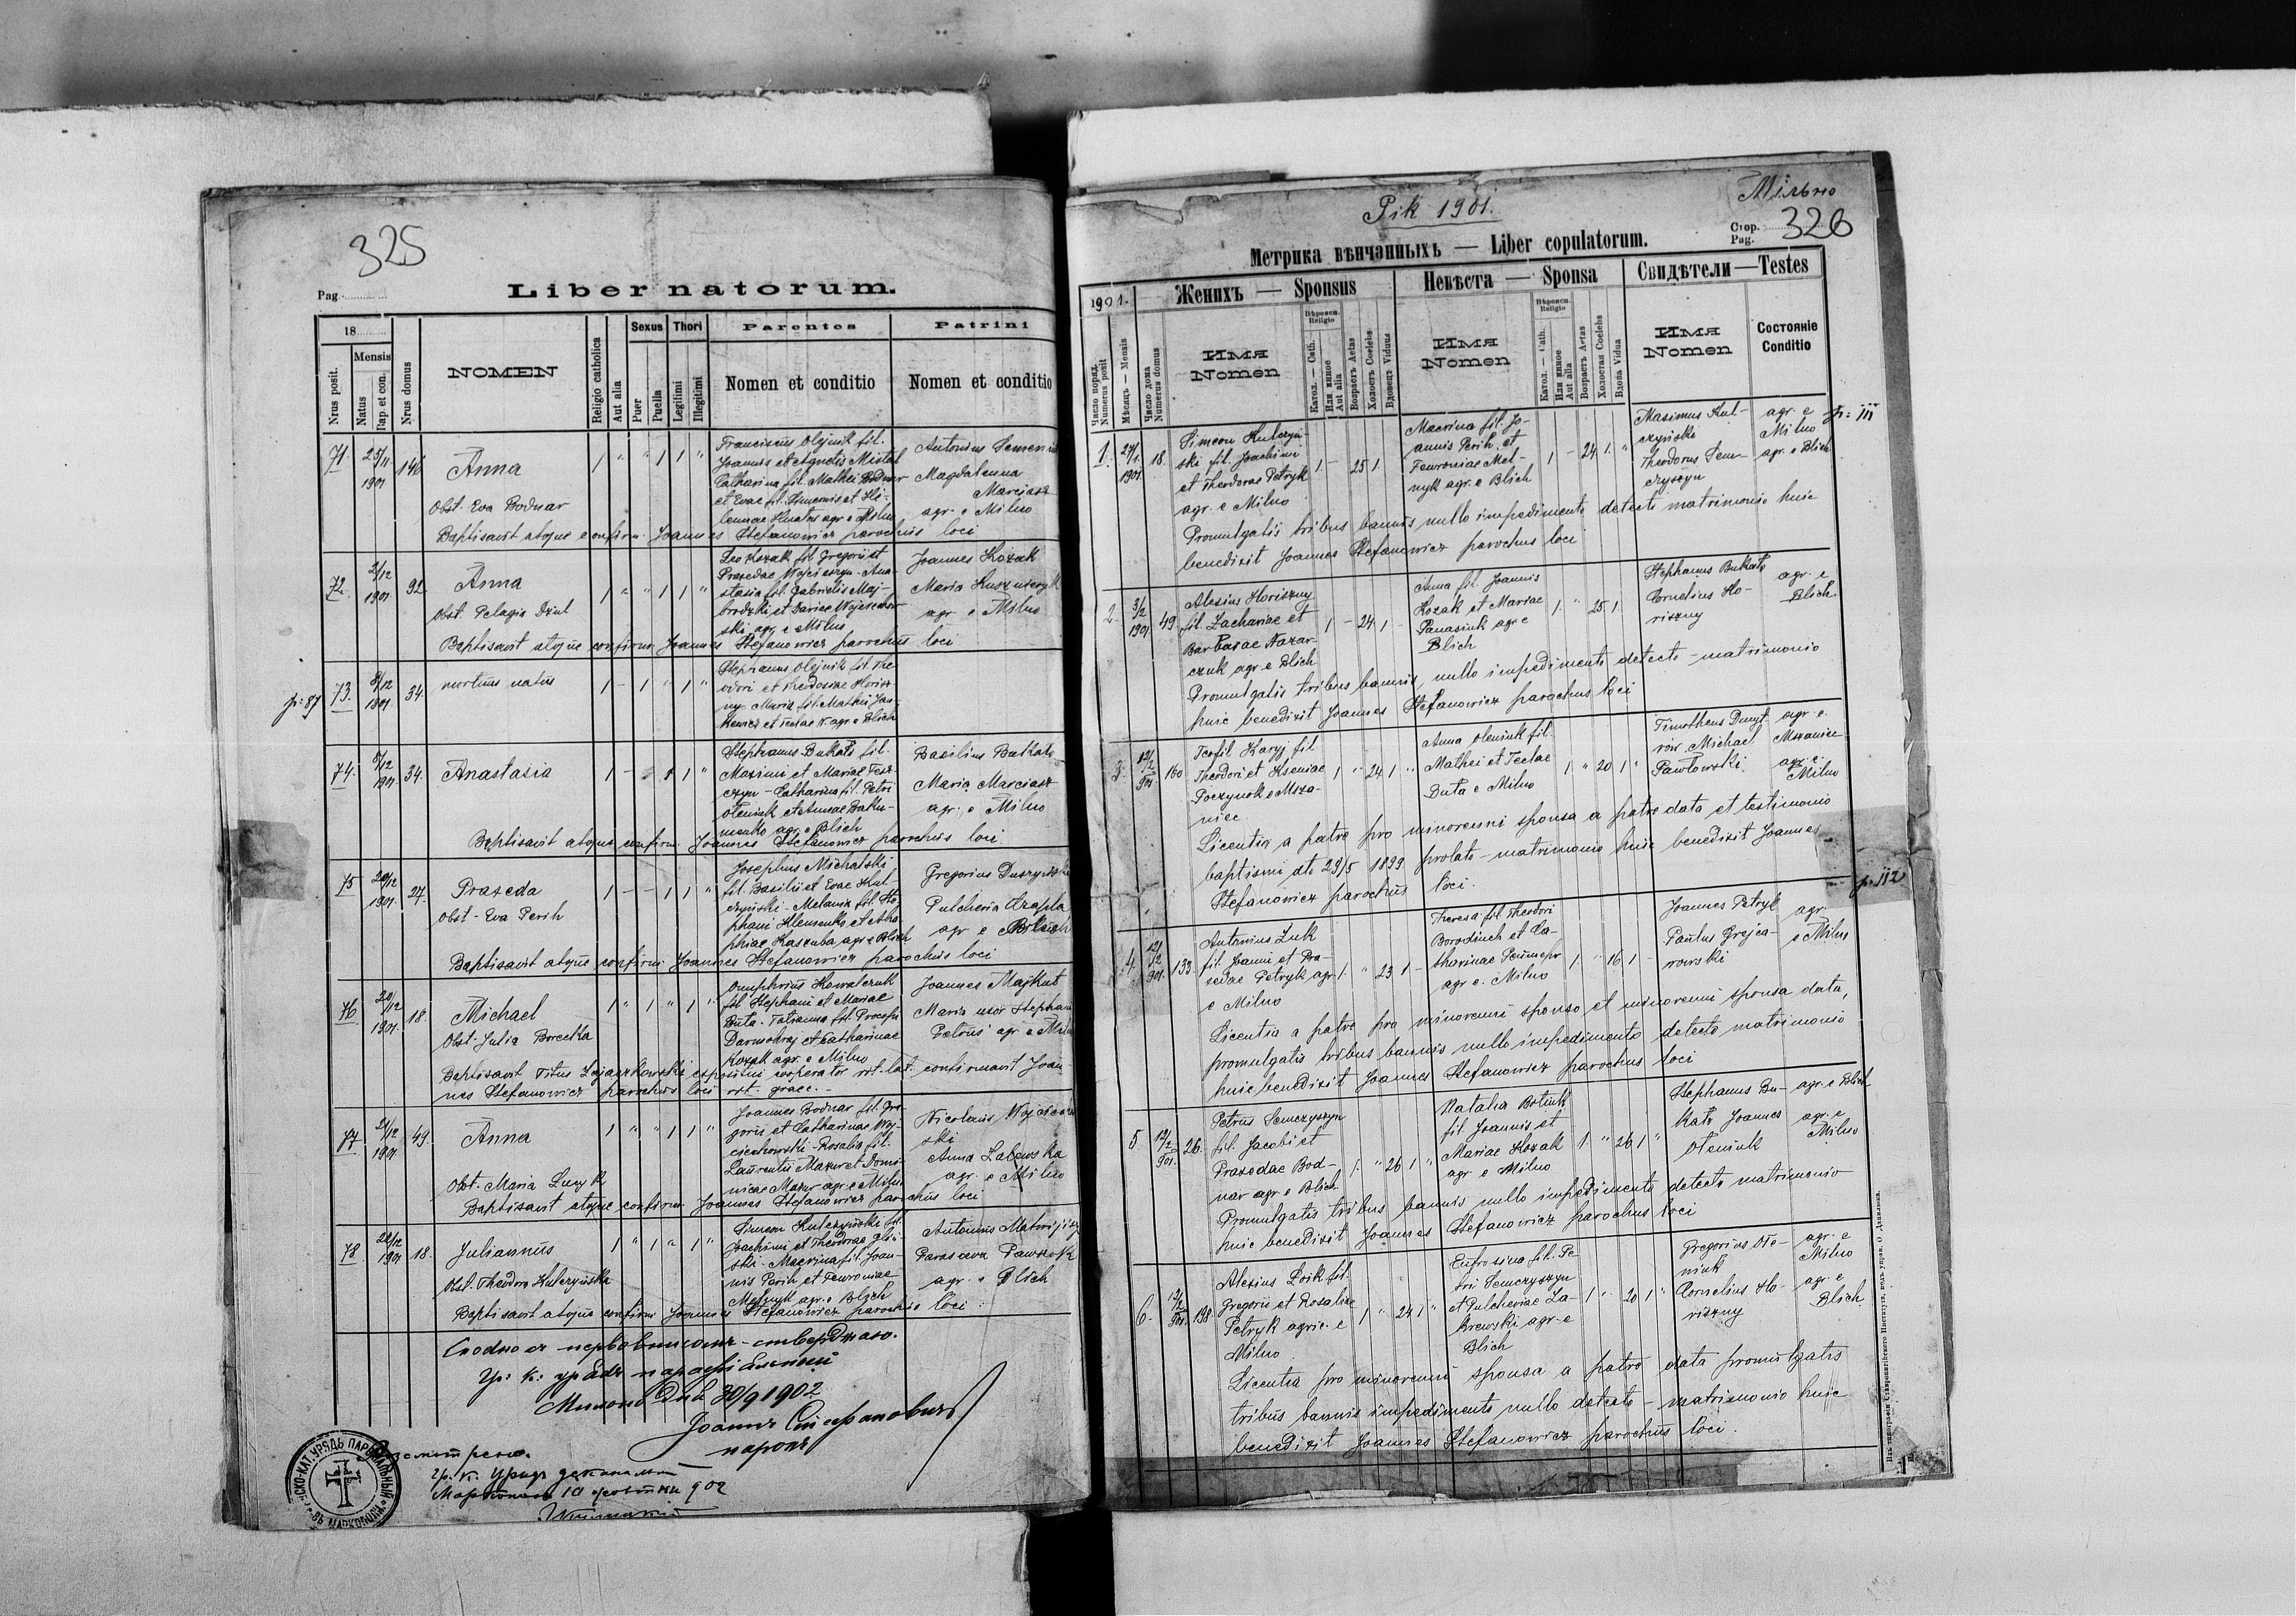 325
Pag.
Liber natorum.
18
Mensis
Nrus posit.
Natus
Bap. et con.
Nrus domus
NOMEN
Religio catholica
Aut alia
Sexus
Puer
Puella
Thori
Legitimi
Illegitimi
Parentes
Nomen et conditio
Patrini
Nomen et conditio
71. 25/11 1901 146 Anna
Obst. Eva Bodnar
Franciscus Olejnik fil.
Joannis et Agnetis Mistal
Catharina fil. Mathei Bodnar
et Evae fil. Simeonis et
agr. e Milno
Antonius
Magdalenna
Marciasz
agr. e Milno
Baptisavit atque confirm. Joannes Stefanowicz parochus loci
72. 2/12 1901 92 Anna
Obst. Pelagia Dziul
Leo Kozak fil. Gregorii et
Praxedae Wojciszyn - Ana-
stasia fil. Gabrielis Maj-
brodzki et Dariae
ski agr. e Milno
Joannes Kozak
Maria
agr. e Milno
Baptisavit atque confirm. Joannes Stefanowicz parochus loci
p: 87
73. 8/12 1901 34. mortuus natus
Stephanus Olejnik fil. The-
odori et Theodosiae Horisz-
ny - Maria fil. Mathei
et Teclae agr. e Blich
74. 8/12 1901 34. Anastasia
Stephanus Bukato fil.
Maximi et Mariae
czyn - Catharina fil. Petri
Oleniuk et Annae
agr. e Blich
Basilius Bukato
Maria Marciasz
agr. e Milno
Baptisavit atque confirm. Joannes Stefanowicz parochus loci
75 20/12 1901 27. Praxeda
Obst. Eva Perih
Josephus Michalski
fil. Basilii et Evae Kul-
czyński - Melania fil. Ste-
phani Klemenko et
phiae Kaszuba agr. e Blich
Gregorius
Pulcheria Czapla
agr. e Blich
Baptisavit atque confirm. Joannes Stefanowicz parochus loci
76 20/12 1901. 18. Michael
Obst. Julia Borecka
Onuphrius Kowalczuk
fil. Stephani et Mariae
Duta. Tatianna fil. Procopii
Darmohraj et Catharinae
Kozak agr. e Milno
Joannes Majkut
Maria uxor Stephani
Petrus agr. e Milno
Baptisavit Titus Zajaczkowski expositus cooperator rit. lat. confirmavit Joan-
nes Stefanowicz parochus loci rit. graec. -
77 21/12 1901 49. Anna
Obst. Maria Lucyk
Joannes Bodnar fil. Gre-
gorii et Catharinae Woj-
ciechowski - Rosalia fil.
Laurentii Mazur et Domi-
nicae Mazur agr. e Milno
Nicolaus
ski
Anna Zalewska
agr. e Milno
Baptisavit atque confirm. Joannes Stefanowicz parochus loci
78 1901 18. Juliannus
Obst. Theodora Kulczyńska
Simeon Kulczyński fil.
Joachimi et Theodorae
Macrina fil. Joan-
nis Perih et Fewroniae
Melnyk agr. e Blich
Antonius
Parascva
agr. e Blich
Baptisavit atque confirm. Joannes Stefanowicz parochus loci
Сходно съ первописомъ - стверджаю.
Гр: к: урядъ парохіяльный
Мильно дня 30/9 1902
Іоаннъ Стефановичъ
парохъ
гр. к. Урядъ
902
Мільно
Рік 1901.
Стор.
Pag.
326
Метрика вѣнчанныхъ — Liber copulatorum.
1901.
Женихъ — Sponsus
Невѣста — Sponsa
Свидѣтели — Testes
Число поряд.
Numerus posit
Мѣсяцъ — Mensis
Число дома
Numerus domus
Имя
Nomen
Вѣроисп.
Religio
Катол. — Cath.
Или иное
Aut alia
Возрастъ Aetas
Холостъ Coelebs
Вдовецъ Viduus
Имя
Nomen
Вѣроисп.
Religio
Катол. — Cath.
Или иное
Aut alia
Возрастъ Aetas
Холостая Coelebs
Вдова Vidua
Имя
Nomen
Состояніе
Conditio
1. 1901. 18. Simeon Kulczyń-
ski fil. Joachimi
et Theodorae Petryk
agr. e Milno
1 - 25 1.
Macrina fil. Jo-
annis Perih et
Fewroniae Mel-
nyk agr. e Blich
1 - 24 1. "
Maximus Kul-
czyński
Theodorus Sem-
czyszyn
agr. e
Milno
agr. e Blich
p: 111
Promulgatis tribus bannis nullo impedimento detecto matrimonio huic
benedixit Joannes Stefanowicz parochus loci
2. 3/2 1901 49 Alexius Horiszny
fil. Zachariae et
Barbarae Nazar-
czuk agr. e Blich
1 - 24 1 -
Anna fil. Joannis
Kozak et Mariae
Panasiuk agr. e
Blich
1. " 25 1.
Stephanus Bukato
Cornelius Ho-
riszny
agr. e
Blich.
Promulgatis tribus bannis, nullo impedimento detecto - matrimonio
huic benedixit Joannes Stefanowicz parochus loci
3. 12/2 901 160 Teofil Karyj fil.
Theodori et Kseniae
Poczynok e Msza-
niec
1 " 24 1 "
Anna Oleniuk fil.
Mathei et Teclae
Duta e Milno
1 " 20 1 "
Timotheus Dmyt-
rów Michael
Pawłowski
agr. e.
Mszaniec
agr. e.
Milno
Licentia a patre pro minorenni sponsa a patre data et testimonio
baptismi dto 29/5 1899 prolato - matrimonio huic benedixit Joannes
Stefanowicz parochus loci.
p. 112
4. 12/2 901. 133. Antonius Luk
fil. Joanni et Pra-
xedae Petryk agr.
e Milno
1. " 23 1 -
Theresa fil. Theodori
Borodiuch et Ca-
tharinae
agr. e. Milno
1 " 16 1 -
Joannes Petryk
Paulus
rowski
agr.
e Milno
Licentia a patre pro minorenni sponso et minorenni sponsa data,
promulgatis tribus bannis nullo impedimento detecto matrimonio
huic benedixit Joannes Stefanowicz parochus loci
5. 12/2 901. 26. Petrus Semczyszyn
fil. Jacobi et
Praxedae Bod-
nar agr. e Blich
1. " 26 1 "
Natalia Botiuk
fil. Joannis et
Mariae Kozak
agr. e Milno
1. " 26 1 "
Stephanus Bu-
kato Joannes
Oleniuk
agr. e Blich
agr. e
Milno
Promulgatis tribus bannis nullo impedimento detecto matrimonio
huic benedixit Joannes Stefanowicz parochus loci
6. 12/2 901. 198. Alexius Loik fil.
Gregorii et Rosaliae
Petryk agric. e
Milno
1 " 24 1 "
Eufrosina fil. Pe-
tri Semczyszyn
et Pulcheriae Za-
krewski agr. e
Blich
1 " 20 1 "
Gregorius Ole-
niuk
Cornelius Ho-
riszny
agr. e
Milno
agr. e
Blich.
Licentia pro minorenni sponsa a patre data promulgatis
tribus bannis impedimento nullo detecto - matrimonio huic
benedixit Joannes Stefanowicz parochus loci.
Изъ типографіи Ставропигійского Института, подъ управ. О. Данилюка.